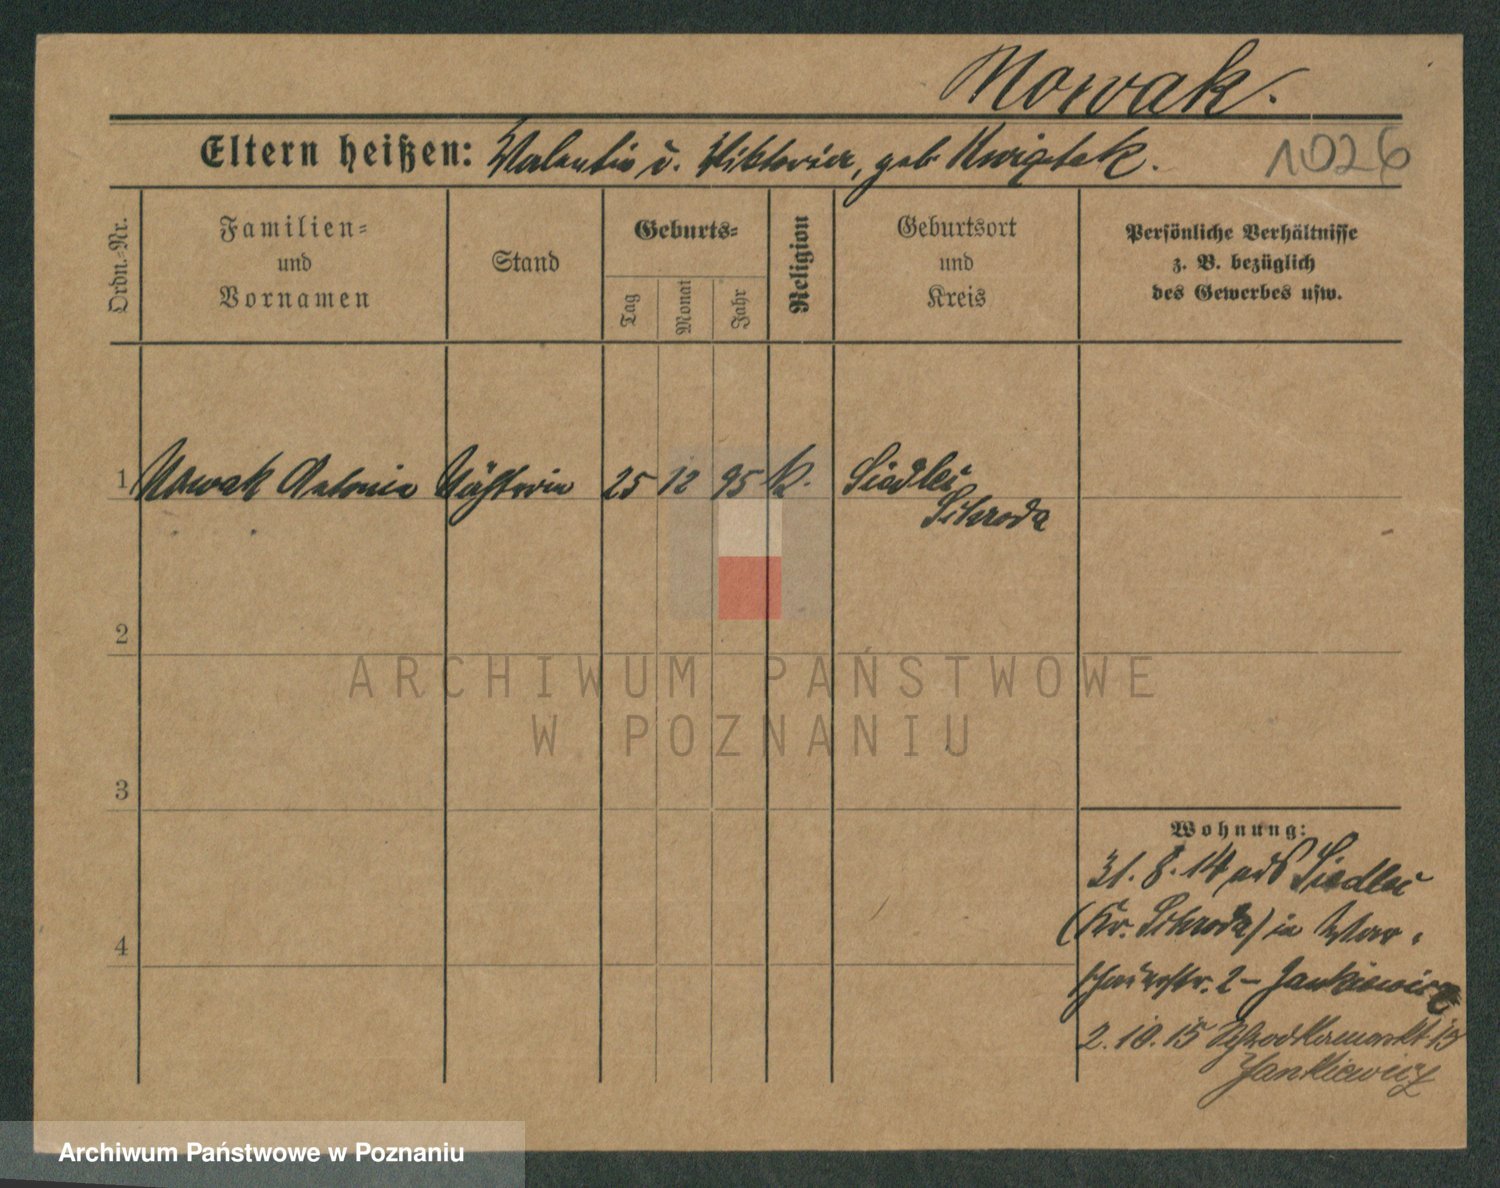 Nowak.
Eltern heißen: Valentin u. Viktoria, geb. Kwiatek.
1026
Ordn.-Nr.
Familien-
und
Vornamen
Stand
Geburts-
Tag
Monat
Jahr
Religion
Geburtsort
und
Kreis
Persönliche Verhältnisse
z. B. bezüglich
des Gewerbes usw.
1 Nowak Antonie 25 12 95 k. Siedlec
Schroda
2
3
4
Wohnung:
31. 8. 14 aus Siedlec
(Kr. Schroda) in War-
schauerstr. 2 - Jankiewicz
2. 10. 15 Schrodkamarkt 15
Jankiewicz
ARCHIWUM PAŃSTWOWE
W POZNANIU
Archiwum Państwowe w Poznaniu